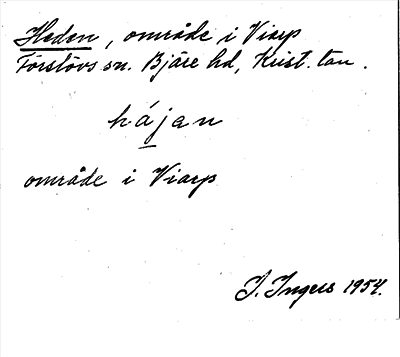 Heden, område i Viarp
Förslövs sn. Bjäre hd, Krist. län.
hájan
område i Viarp
I. Ingers 1954.